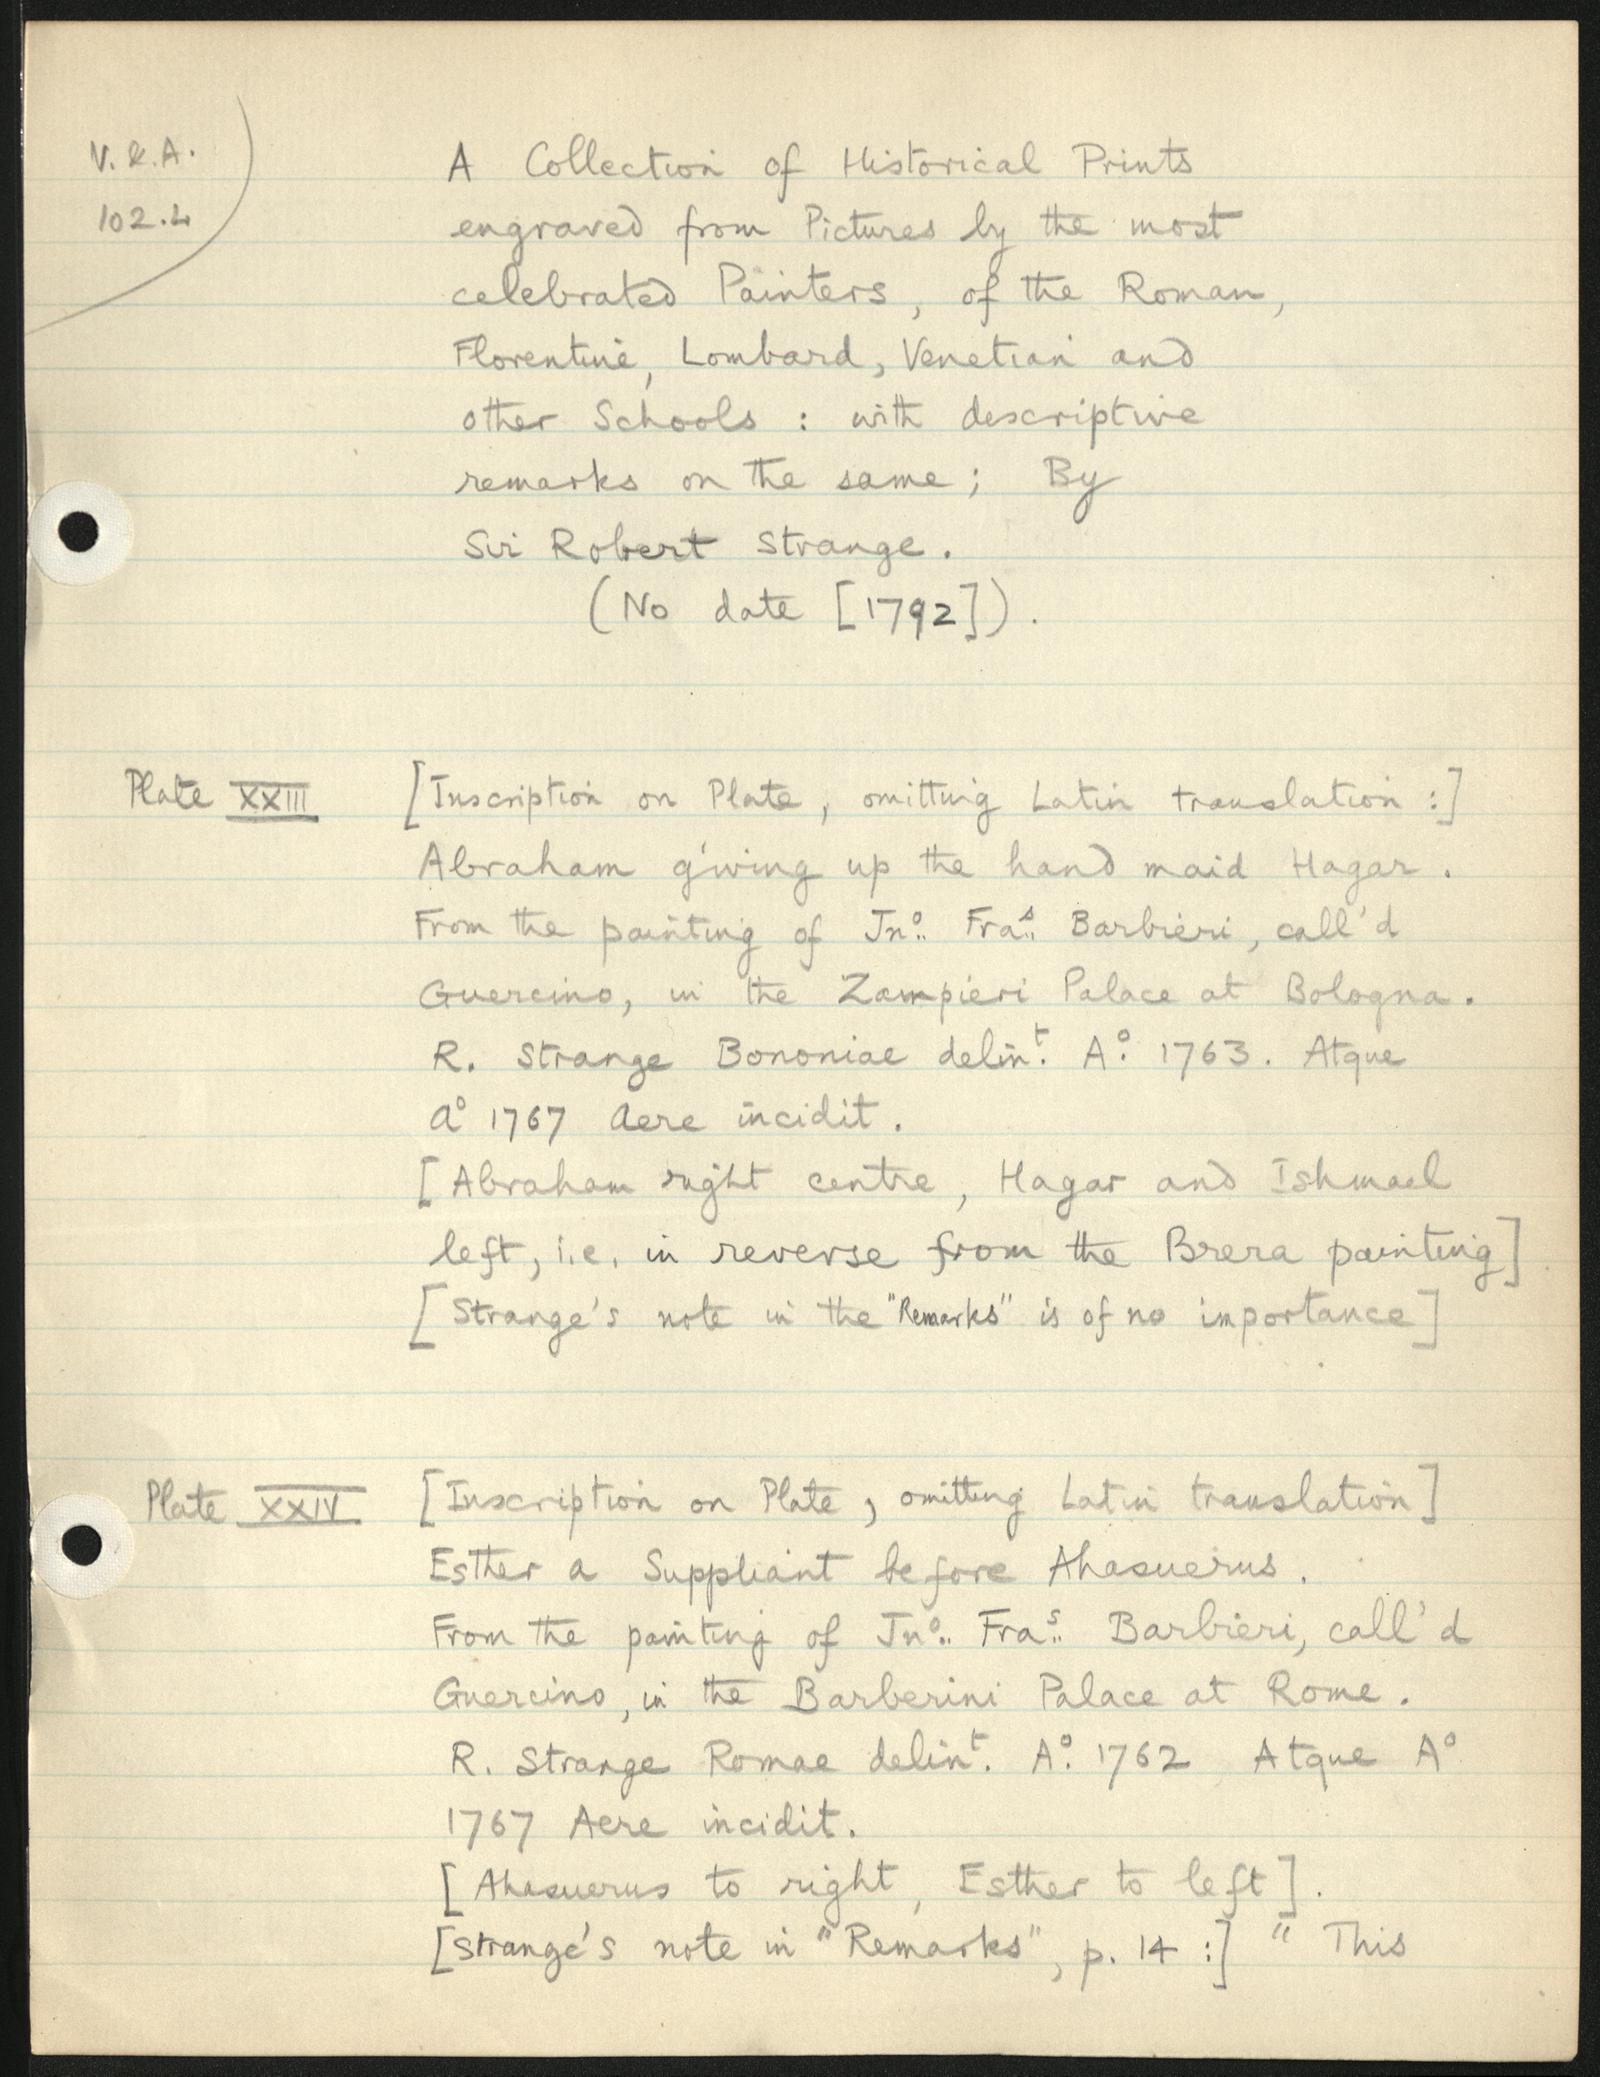 V. & A.
102.L
A Collection of Historical Prints
engraved from Pictures by the most
celebrated Painters, of the Roman,
Florentine, Lombard, Venetian and
other Schools : with descriptive
remarks on the same; By
Sir Robert Strange.
(No date [1792]).
Plate XXIII [Inscription on Plate, omitting Latin translation :]
Abraham giving up the hand maid Hagar.
From the painting of Jnº.. Fraˢ.. Barbieri, call'd
Guercino, in the Zampieri Palace at Bologna.
R. Strange Bononiae delinᵗ. Aº. 1763. Atque
Aº 1767 Aere incidit.
[Abraham right centre, Hagar and Ishmael
left, i.e. in reverse from the Brera painting]
[Strange's note in the "Remarks" is of no importance]
Plate XXIV [Inscription on Plate, omitting Latin translation]
Esther a Suppliant before Ahasuerus.
From the painting of Jnº.. Fraˢ.. Barbieri, call'd
Guercino, in the Barberini Palace at Rome.
R. Strange Romae delinᵗ. Aº. 1762 Atque Aº
1767 Aere incidit.
[Ahasuerus to right, Esther to left].
[Strange's note in "Remarks", p. 14 :] " This